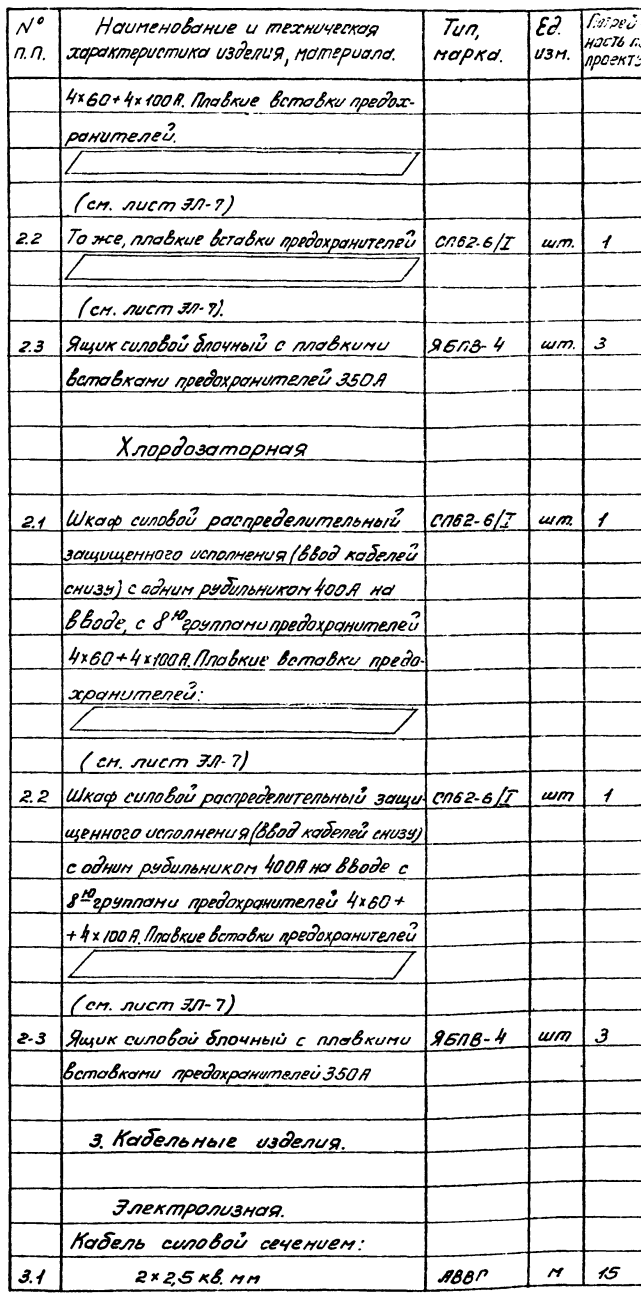 N° Наименование и техническая Тип, Ед.
п.п. характеристика изделия, материала. марка. изм. проекту
4×60+4×100А. Плавкие вставки предох-
ранителей.
(см. лист ЭЛ-7)
2.2 То же, плавкие вставки предохранителей СП62-6/I шт. 1
(см. лист ЭЛ-7).
2.3 Ящик силовой блочный с плавкими ЯБПВ-4 шт. 3
вставками предохранителей 350А
Хлордозаторная
2.1 Шкаф силовой распределительный СП62-6/I шт. 1
защищенного исполнения (ввод кабелей
снизу) с одним рубильником 400А на
вводе, с 8ю группами предохранителей
4×60+4×100А. Плавкие вставки предо-
хранителей:
(см. лист ЭЛ-7)
2.2 Шкаф силовой распределительный защи- СП62-6/I шт 1
щенного исполнения (ввод кабелей снизу)
с одним рубильником 400А на вводе с
8ю группами предохранителей 4×60+
+4×100А. Плавкие вставки предохранителей
(см. лист ЭЛ-7)
2-3 Ящик силовой блочный с плавкими ЯБПВ-4 шт 3
вставками предохранителей 350А
3. Кабельные изделия.
Электролизная.
Кабель силовой сечением:
3.1 2×2,5 кв. мм АВВГ м 15